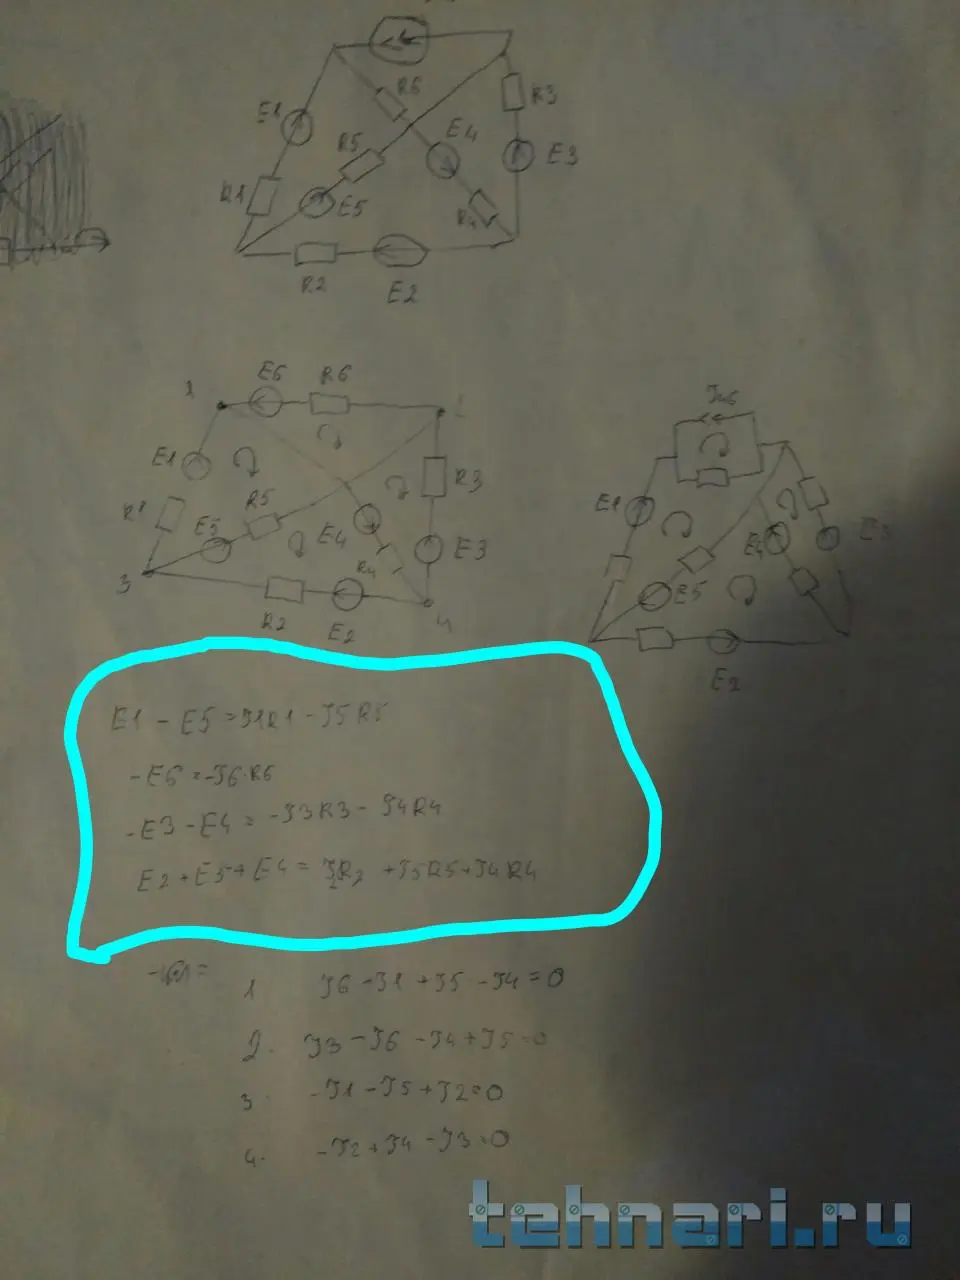 R6
R3
E1
E4
R5
E3
R1
E5
R4
R2
E2
1
E6
R6
E1
R3
R1
R5
E5
E4
E3
R4
3
R2
E2
4
E1
E4
E5
E2
E1 - E5 = J1R1 - J5R5
-E6 = -J6·R6
-E3 - E4 = -J3R3 - J4R4
E2 + E5 + E4 = J2R2 + J5R5 + J4R4
1 J6 - J1 + J5 - J4 = 0
2. J3 - J6 - J4 + J5 = 0
3 -J1 - J5 + J2 = 0
4. -J2 + J4 - J3 = 0
tehnari.ru